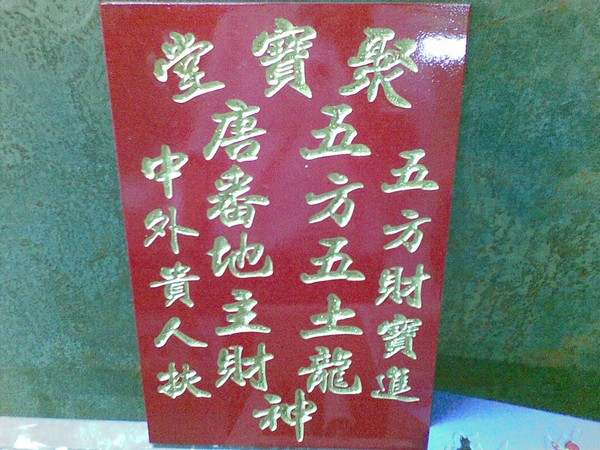 聚寶堂
五方財寶進
五方五土龍
唐番地主財
神
中外貴人扶